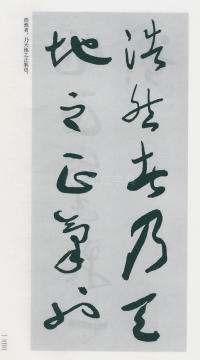 浩然者乃天
地之正氣也
浩然者，乃天地之正氣也。
一三三